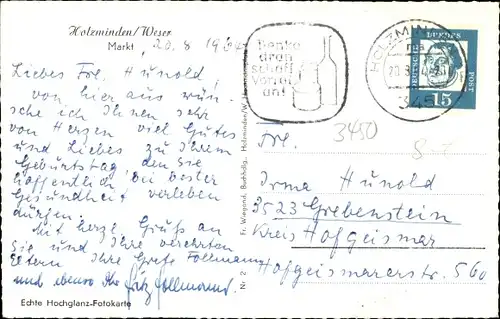 Holzminden/Weser
Markt, 20. 8. 1964
Liebes Frl. Hunold,
von hier aus wün-
sche ich Ihnen sehr
von Herzen viel Gutes
und Liebes zu Ihrem
Geburtstag den Sie
hoffentlich bei bester
Gesundheit verleben
dürfen.
Mit herzl. Gruß an
Sie und Ihre verehrten
Eltern Ihre Grete Follmann
und ebenso Ihr Fritz Follmann.
Echte Hochglanz-Fotokarte
Nr. 2 Fr. Wiegand, Buchhdlg., Holzminden/W.
Denke
dran
schaff
Vorrat
an!
HOLZMINDEN
20.8.
345
DEUTSCHE
BUNDESPOST
15
3450
Frl.
Irma Hunold
3523 Grebenstein
Kreis Hofgeismar
Hofgeismarerstr. 560